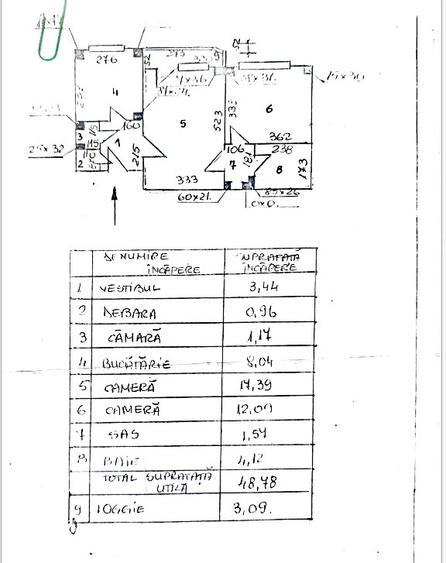 276
273
9
4
160
1
3
115
2
215
25x32
5
523
333
6
362
106
238
7
181
8
173
60x21
85x26
DENUMIRE ÎNCĂPERE
SUPRAFAȚĂ ÎNCĂPERE
1 VESTIBUL 3,44
2 DEBARA 0,96
3 CĂMARĂ 1,17
4 BUCĂTĂRIE 8,04
5 CAMERĂ 17,39
6 CAMERĂ 12,09
7 SAS 1,57
8 BAIE 4,12
TOTAL SUPRAFAȚĂ UTILĂ 48,78
9 LOGGIE 3,09.